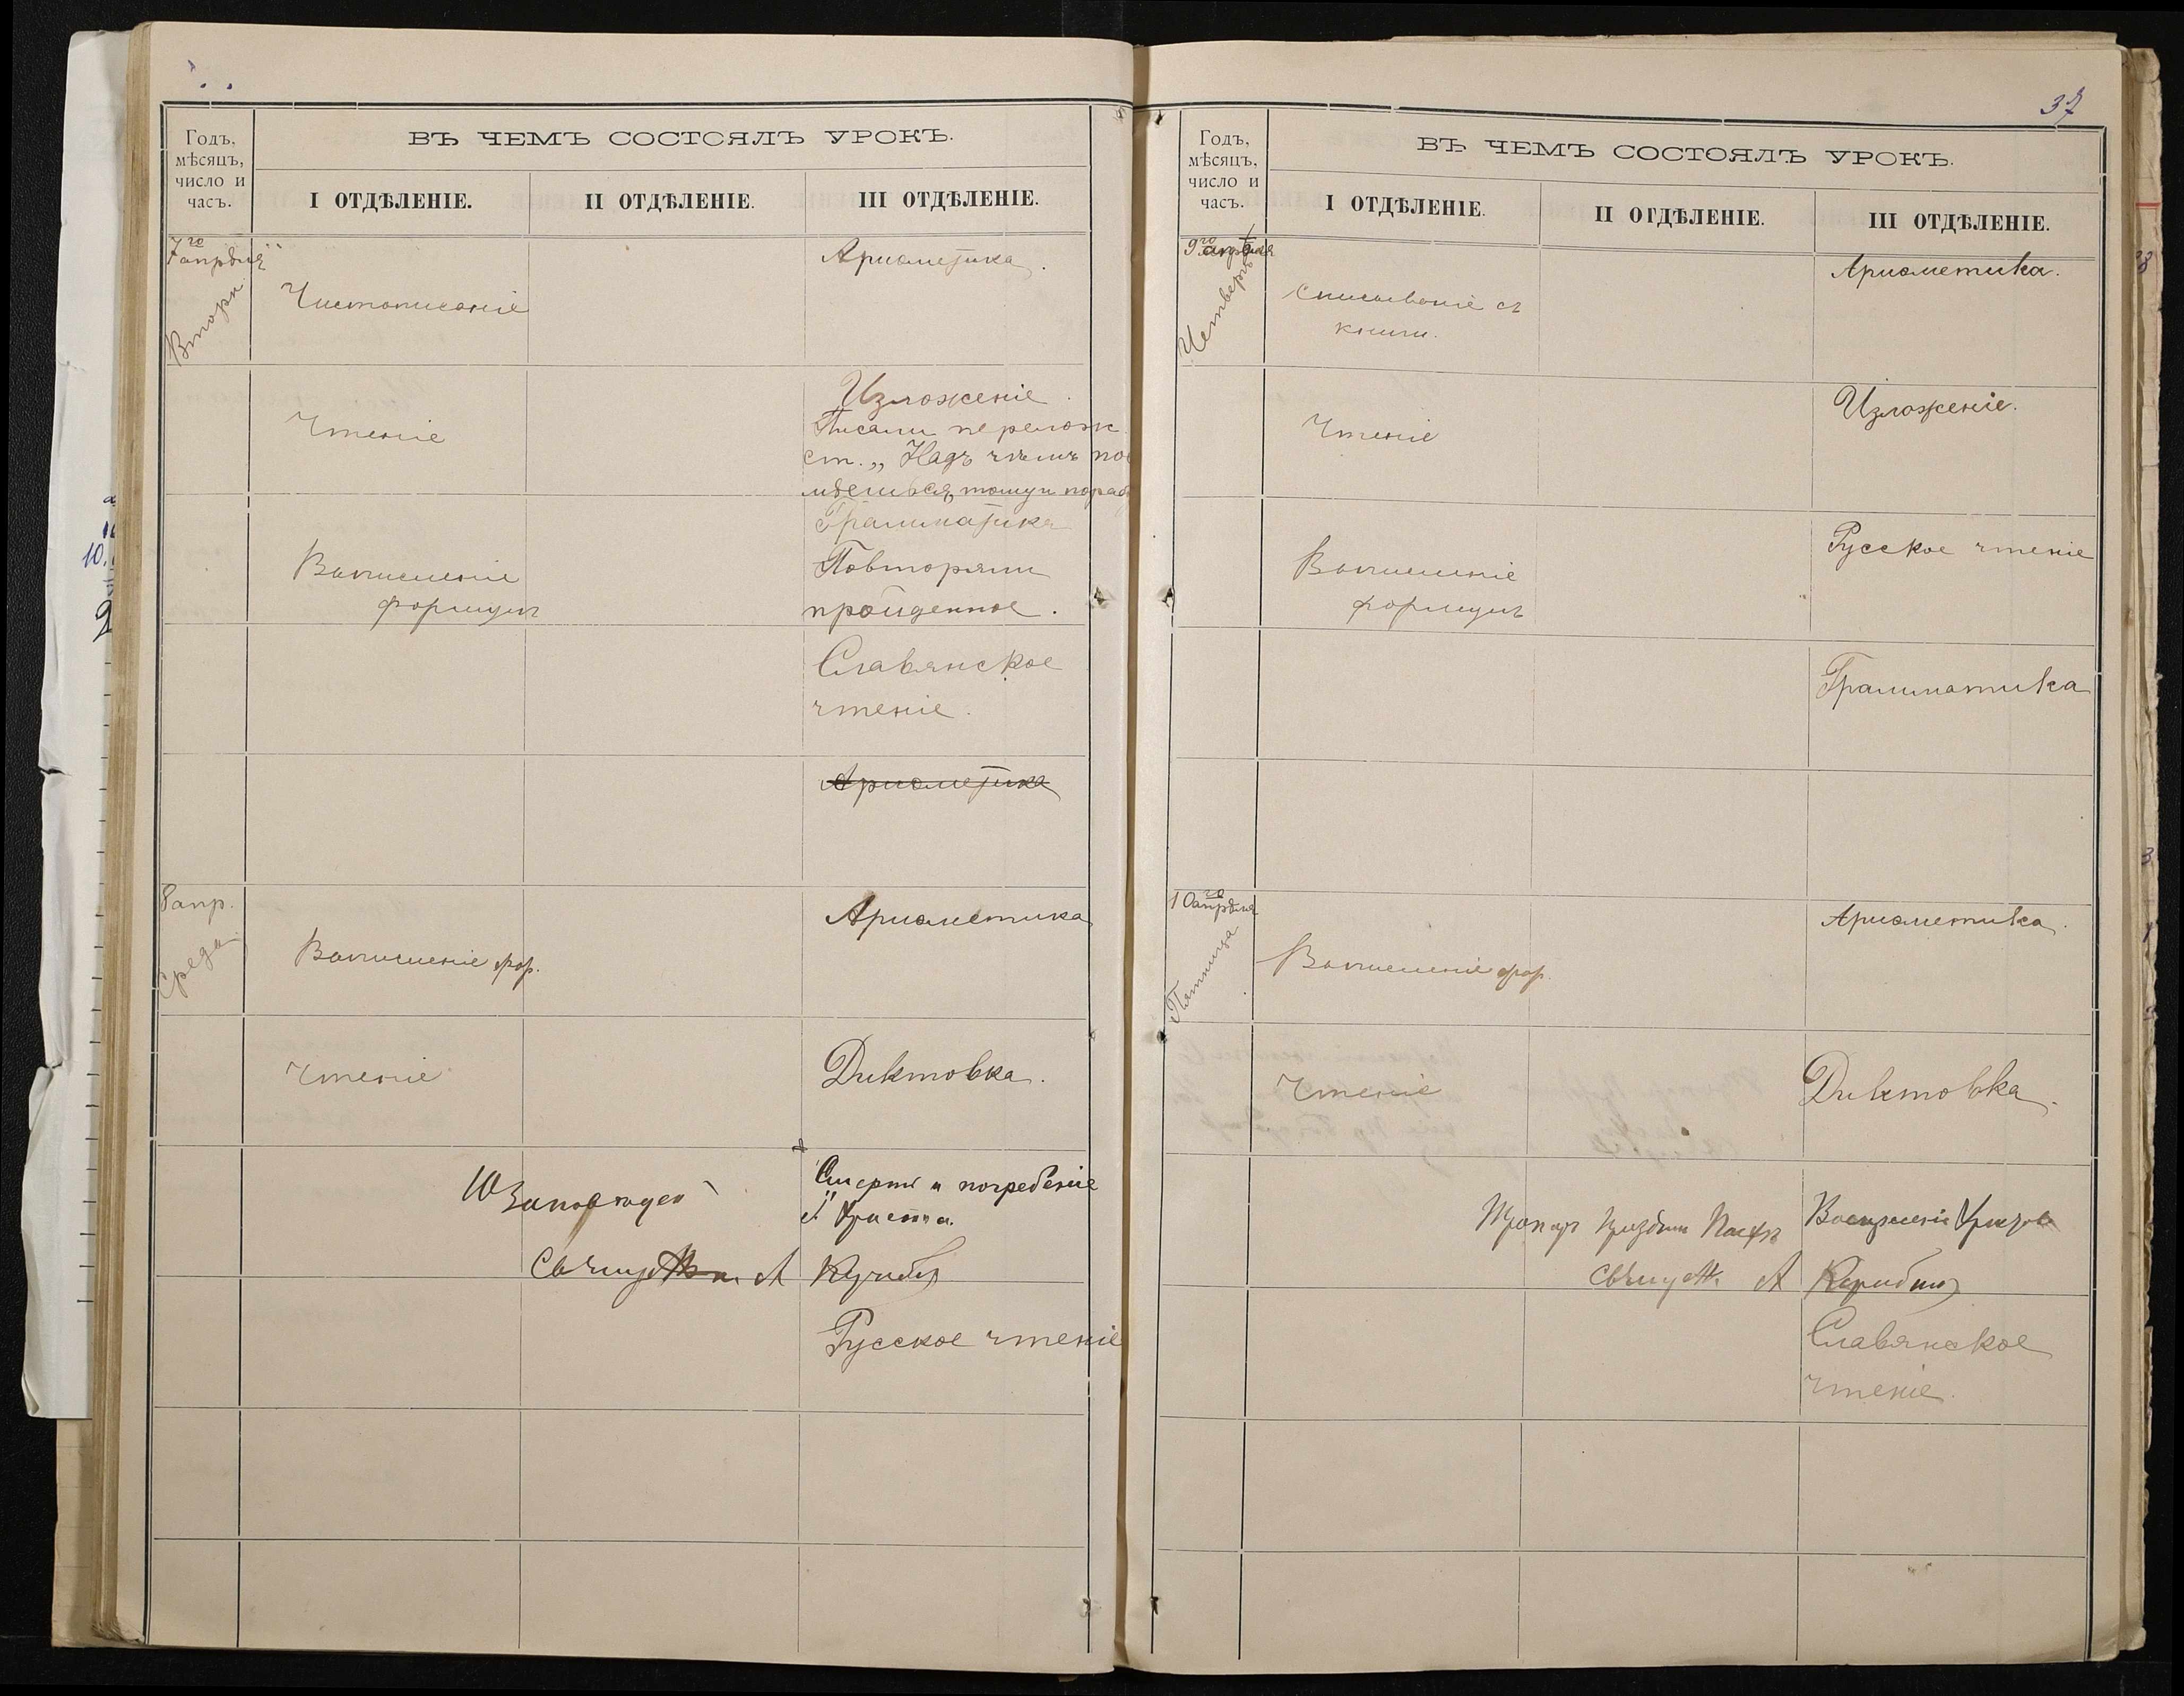 Годъ,
мѣсяцъ,
число и
часъ.
ВЪ ЧЕМЪ СОСТОЯЛЪ УРОКЪ.
I ОТДѢЛЕНІЕ.
II ОТДѢЛЕНІЕ.
III ОТДѢЛЕНІЕ.
7го апрѣля
Вторн.
Чистописаніе
Ариѳметика.
Чтеніе
Изложеніе.
Писали перелож
ст. „Надъ чѣмъ по
Грамматика
Вычисленіе
формулъ
Повторяли
пройденное.
Славянское
чтеніе.
Ариѳметика
8 апр.
Среда
Вычисленіе фор.
Ариѳметика
Чтеніе
Диктовка.
10 Заповѣдей
Смерть и погребеніе
І. Христа.
Свящ. А
Русское чтеніе
37
Годъ,
мѣсяцъ,
число и
часъ.
ВЪ ЧЕМЪ СОСТОЯЛЪ УРОКЪ.
I ОТДѢЛЕНІЕ.
II ОТДѢЛЕНІЕ.
III ОТДѢЛЕНІЕ.
9го апрѣля
Четвергъ
Списываніе съ
книги.
Ариѳметика.
Чтеніе
Изложеніе.
Вычисленіе
формулъ
Русское чтеніе
Грамматика
10го апрѣля
Пятница
Вычисленіе фор.
Ариѳметика.
Чтеніе
Диктовка.
Тропарь Пасхи
Воскресеніе Христово
А
Славянское
чтеніе.